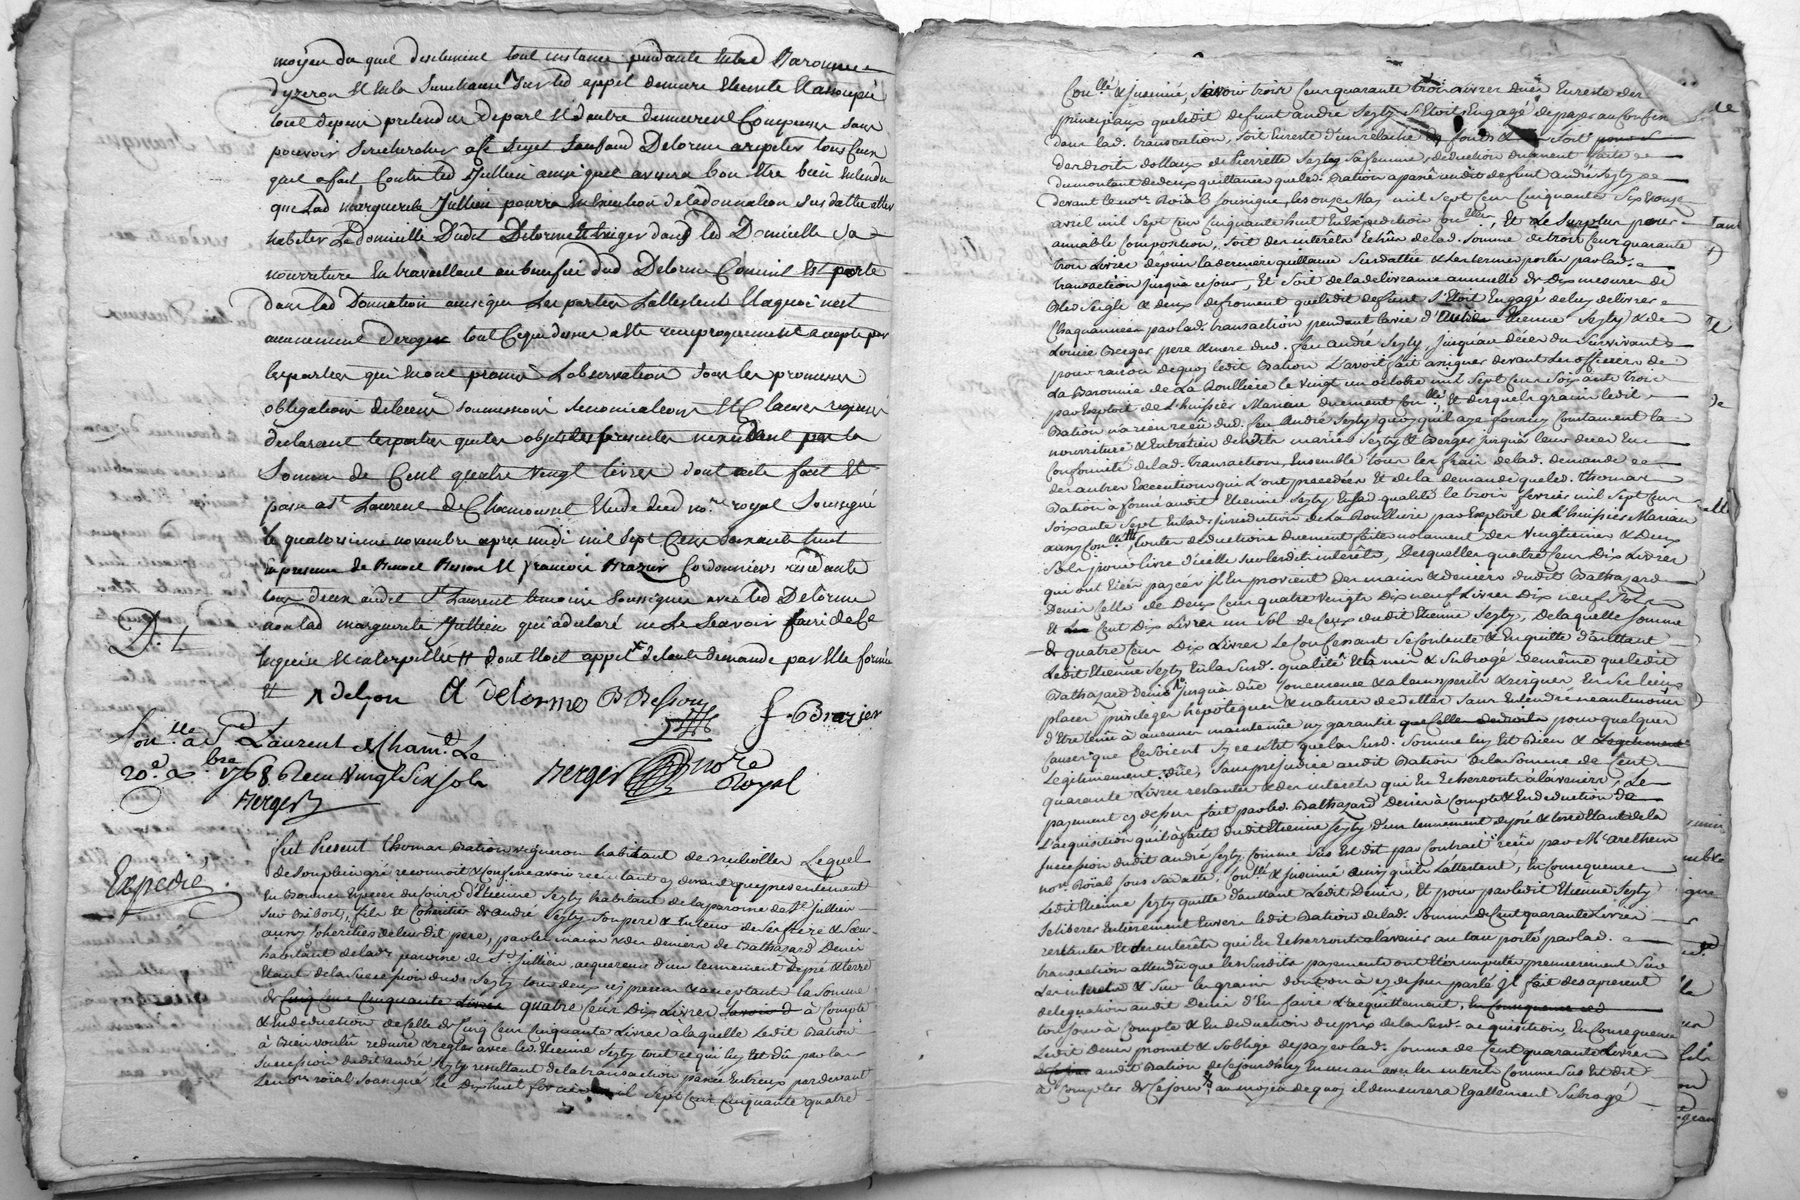 moyen du quel desistement tout instance pendante entre Baronnie
dyzeron et en la Senechaussé sur led appel demeure eteinte et assoupie
tous depens pretendus de part et d'autre demeurent Compensés sans
pouvoir Se rechercher a Ce Sujet Sauf aud Delorme a repeter tous Ceux
quil a fait Contre led Jullien ainsi quil avisera bon etre bien entendu
que lad marguerite Jullien pourra en execution de la donnation Susdattée aller
habiter Le domicille dudit Delorme et exiger dans led Domicille Sa
nourriture En travaillant au benefice dud Delorme Comme il Est porté
dans lad Donnation ainsi que Les parties L'attestent et a quoi n'est
aucunement deroger tout Ce que dessus a été reciproquement accepté par
les parties qui en ont promis L'observation sous les promesses
obligations de biens soumissions renonciations et Clauses requises
declarant les parties que les objets des presentes n'excedent pas la
Somme de Cent quatre vingt livres dont acte fait et
passé a St Laurent de Chamousset Etude dud nore royal Soussigné
le quatorzieme novembre apres midi mil Sept Cent Soixante huit
en presence de Benoit Besson et françois Brazier Cordonniers residants
tous deux audit St Laurent temoins Soussignés avec led Delorme
non lad marguerite Jullien qui a declaré ne Le Scavoir faire de Ce
enquise et interpellée dont et de la demande par elle formée
D. L
A delorme B Besson f. Brazier
Conlle a St Laurent de Chamt Le
20e 9bre 1768 Reçu Vingt Six Sols
Berger
Berger nore Royal
Expedié
fut Present thomas Bation vigneron habitant de Lequel
de Son plein gré reconnoit & Confesse avoir reçu tant cy devant que presentement
En Bonnes Especes du Cours d'Etienne Seyty habitant de la paroisse de St Jullien
Sur Bibost, fils et Coheritier de andré Seyty Son pere & tuteur de Ses frere & Sœur
aussy Coheritiers de leur dit pere, par les mains & des deniers de Balthazard Denis
habitant de lade paroisse de St Jullien, acquereur d'un tennement de pré & terre
Etant de la Succession dud Seyty tous deux cy presens & acceptant la Somme
de Cinq Cent Cinquante Livres quatre Cent Dix Livres Savoir à Compte
& En deduction de Celle de Cinq Cent Cinquante Livres a laquelle Ledit Bation
à Bien voulu reduire & regler avec led. Etienne Seyty tout ce qui luy Est dû par la
Succession dudit andré Seyty resultant de la transaction passée Entreux par devant
Le nore roïal Soussigné le Dixhuit fevrier mil Sept Cent Cinquante quatre
Conllé & Insinué, Savoir trois Cent quarante trois Livres dues En reste des
principaux que ledit defunt andré Seyty S'Etoit Engagé de payer au Confess
dans lad. transaction, Soit En reste d'un relache de fonds & Soit pour
des droits dottaux de Pierrette Seyty Sa femme, deduction dument faite
du montant de deux quittances que led. Bation a passé audit defunt andré Seyty
devant le nore Roial Soussigné, les onze May mil Sept Cent Cinquante Six & onze
avril mil Sept Cent Cinquante huit En Expedition Conllées, Et Le Surplus pour
amiable Composition, Soit des interêts Echus de lad. Somme de trois Cent quarante
trois Livres depuis la derniere quittance Susdattée & Les termes portés par lad.
transaction jusqua ce jour, Et Soit de la delivrance annuelle de Dix mesures de
Bled Seigle & deux de froment que ledit defunt S'Etoit Engagé de luy delivrer
Chaque année par lad. transaction pendant la vie d'Etienne Seyty & de
Louise Berger pere & mere dud. feu andré Seyty, jusquau deces du Survivant
pour raison de quoy ledit Bation L'avoit fait assigner devant Les officiers de
La Baronnie de La Roulliere le vingt un octobre mil Sept Cent Soixante Trois
par Exploit de L'huissier Marian duement Conllé, Et desquels grains ledit
Bation n'a rien reçu dud. feu André Seyty quoy quil aye fourni Constament la
nourriture & Entretien desdits mariés Seyty & Berger jusqu'à leur deces En
Conformité de lad. Transaction, Ensemble tous les frais de lad. demande
des autres Executions qui L'ont precedées Et de la demande que led. Thomas
Bation à formé audit Etienne Seyty Esdle qualité le trois fevrier mil Sept Cent
Soixante Sept En lad. jurisdiction de La Roulliere par Exploit de L'huissier Marian
aussy Conllé, toutes deductions duement faites notament des Vingtiemes & Deux
Sols pour livre d'icelle Sur lesdits interêts, Desquelles quatre Cent Dix Livres
qui ont Eté payées il En provient des mains & deniers dudit Balthazard
Denis Celle de Deux Cent quatre vingts Dix neuf Livres Dix neuf Sols
Et Cent Dix Livres un Sol de Ceux dudit Etienne Seyty, De laquelle Somme
de quatre Cent Dix Livres Le Confessant Se Contente & En quitte d'autant
Ledit Etienne Seyty En la Susd. qualité Et à mis & Subrogé de même que ledit
Balthazard Denis jusqu'à dûe Concurrence & a leurs perils & risques En Ses Lieux
places, privileges hipoteques & natures de dettes Sans Entendre neantmoins
d'Etre tenu à aucune maintenüe ny garantie que Celle de droit pour quelque
Cause que Ce Soient Si ce n'est que la Susd. Somme luy Est Bien & Legitimement
Legitimement dûe, Sans prejudice audit Bation de la Somme de Cent
quarante Livres restantes & des interets qui En Echerront à l'avenir, Le
payement cy dessus fait par led. Balthazard Denis à Compte & En deduction de
L'acquisition quil à faite dudit Etienne Seyty d'un tennement de pré & terre Etant de la
Succession dudit andré Seyty Comme Sus Est dit par Contract reçu par Me arethein
nore Roïal Sous Sa datte Conllé & Insinué ainsy quils L'attestent, En Consequence
Ledit Etienne Seyty quitte d'autant Ledit Denis, Et pour par ledit Etienne Seyty
Se liberer Entierement Envers ledit Bation de lad. Somme de Cent quarante Livres
restantes Et des interêts qui En Echerront a l'avenir au taux porté par lad.
transaction attendu que les Susdits payements ont Eté imputés premierement Sur
Les interets & Sur les grains dont on à cy dessus parlé il fait des a present
delegation audit Denis d'En faire L'acquittement, En Consequence
toujours à Compte & En deduction du prix de la Susd. acquisition, En Consequence
Ledit Denis promet & S'oblige de payer lad. Somme de Cent quarante Livres
audit Bation de Cejourdhuy En un an avec les interets Comme Sus Est dit
à Compter de Ce jour, au moyen de quoy il demeurera Egallement Subrogé